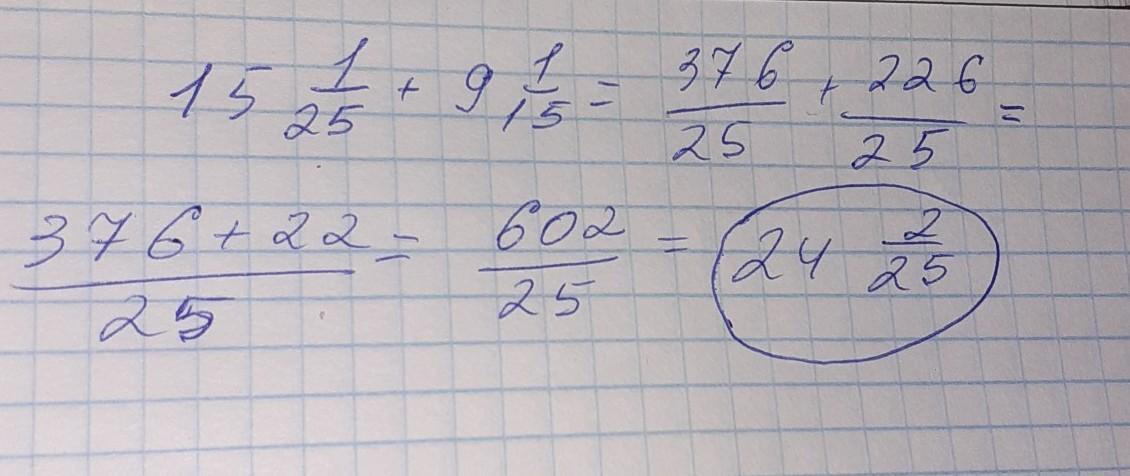 15 1/25 + 9 1/15 = 376/25 + 226/25 =
376 + 22/25 = 602/25 = 24 2/25